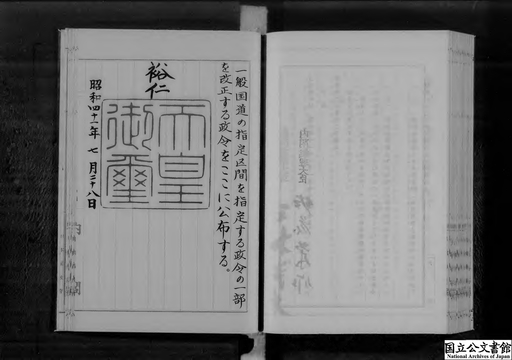 一般国道の指定区間を指定する政令の一部
を改正する政令をここに公布する。
裕仁
天皇
御璽
昭和四十一年七月二十八日
国立公文書館
National Archives of Japan